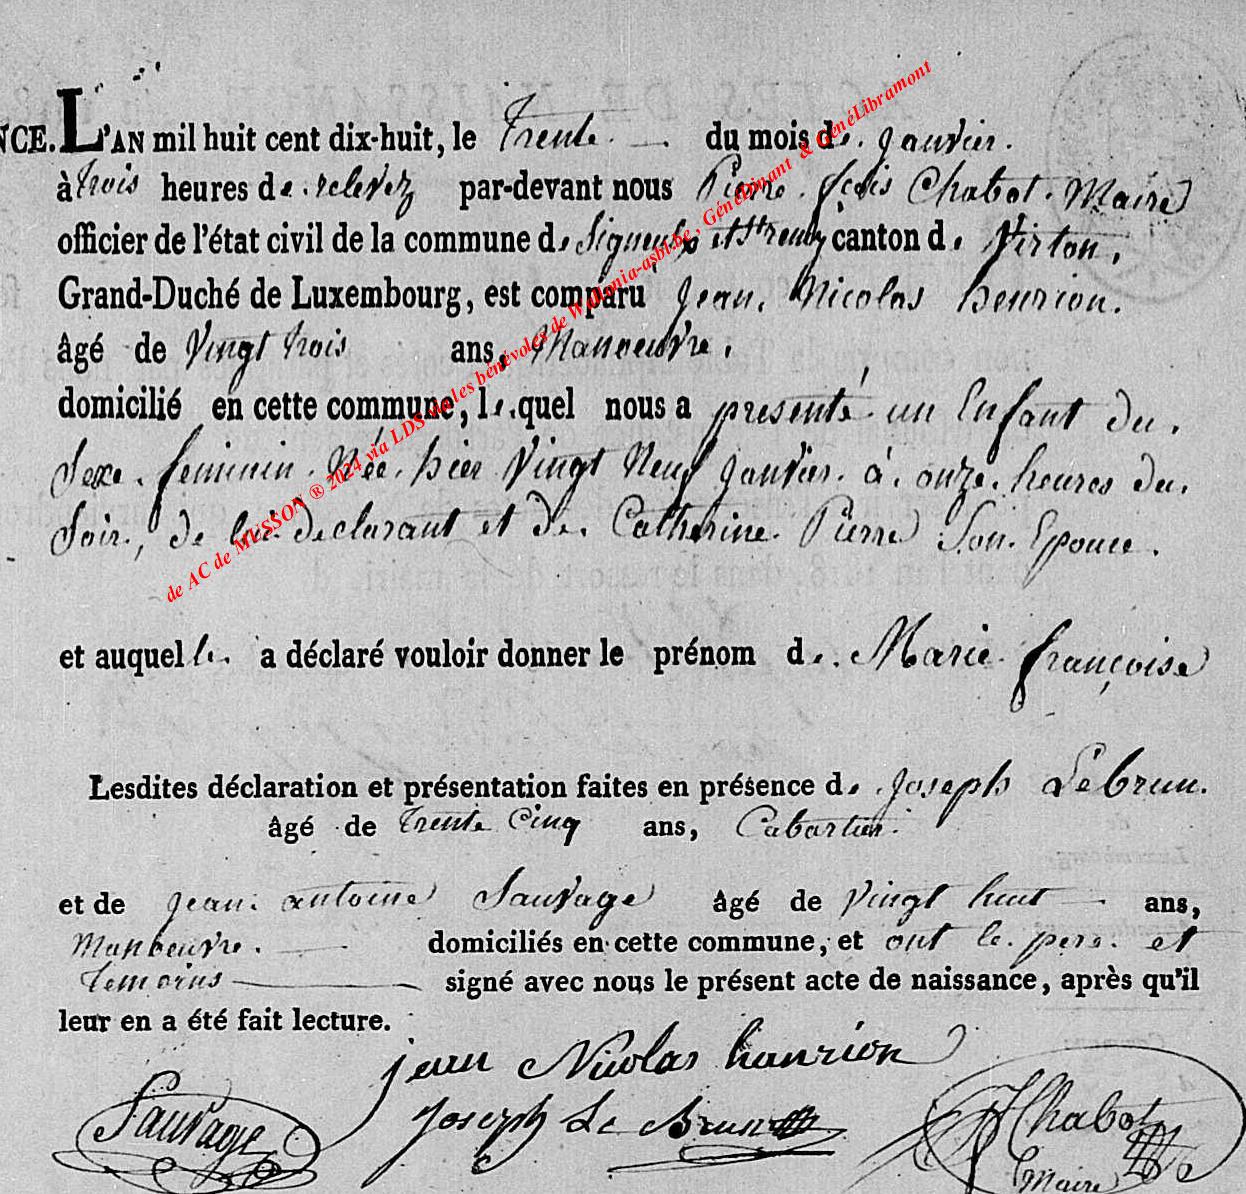 NCE. L'AN mil huit cent dix-huit, le trente du mois de janvier.
à trois heures de relevez par-devant nous Pierre Chabot. Maire
officier de l'état civil de la commune de Signeulx et St remy canton de Virton,
Grand-Duché de Luxembourg, est comparu Jean. Nicolas henrion.
âgé de Vingt trois ans, Manoeuvre,
domicilié en cette commune, lequel nous a présenté un Enfant du,
Sexe feminin. Née. hier Vingt Neuf Janvier. à. onze. heures du.
Soir, de lui declarant et de. Catherine. Pierre Son. Epouce.
et auquel le. a déclaré vouloir donner le prénom de. Marie françoise
Lesdites déclaration et présentation faites en présence de Joseph Lebrun.
âgé de trente Cinq ans, Cabartier.
et de Jean. antoine Sauvage âgé de Vingt huit ans,
Manoeuvre. domiciliés en cette commune, et ont le. pere. et
temoins signé avec nous le présent acte de naissance, après qu'il
leur en a été fait lecture.
jean Nicolas hanrion
Sauvage Joseph Le Brun Chabot
Maire
de AC de MUSSON ® 2024 via LDS via les bénévoles de Wallonia-asbl.be, GénéDinant & GénéLibramont